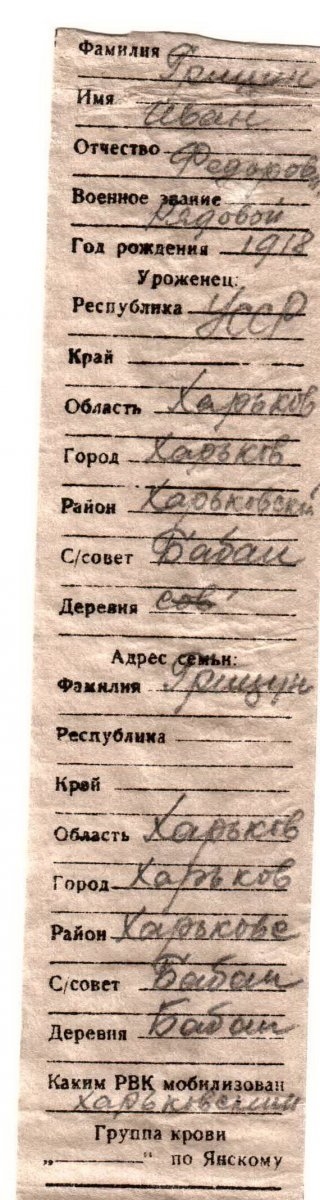 Фамилия Грищун
Имя Иван
Отчество Федоров
Военное звание
Рядовой
Год рождения 1918
Уроженец:
Республика УССР
Край
Область Харьков
Город Харьков
Район Харьковский
С/совет Бабаи
Деревня сов
Адрес семьи:
Фамилия Грищун
Республика
Край
Область Харьков
Город Харьков
Район Харькове
С/совет Бабаи
Деревня Бабаи
Каким РВК мобилизован
Харьковским
Группа крови
„ “ по Янскому